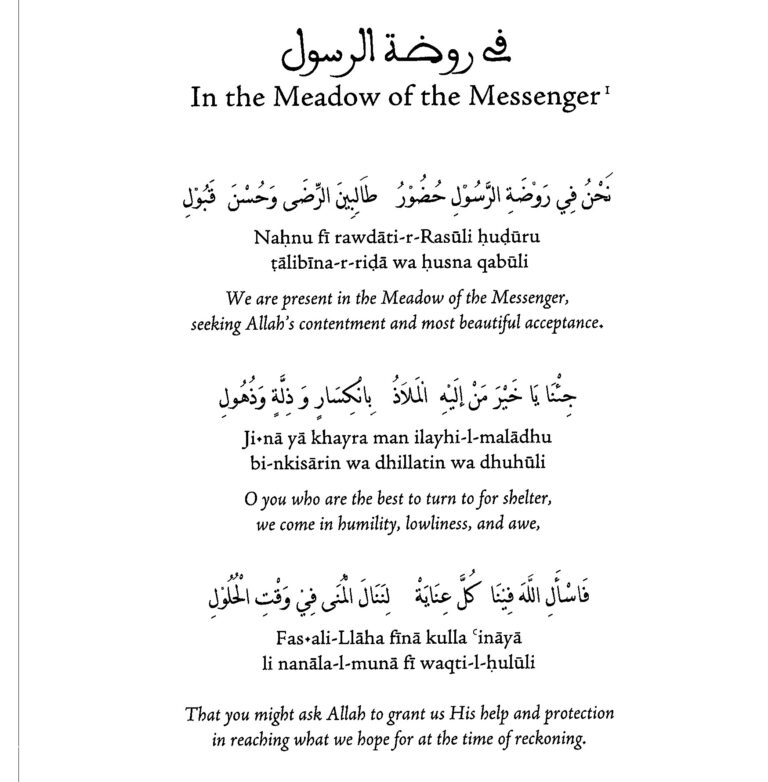 في روضة الرسول
In the Meadow of the Messenger¹
نَحْنُ فِي رَوْضَةِ الرَّسُوْلِ حُضُوْرُ طَالِبِينَ الرِّضَى وَحُسْنَ قَبُوْلِ
Naḥnu fī rawdāti-r-Rasūli ḥuḍūru
ṭālibīna-r-riḍā wa ḥusna qabūli
We are present in the Meadow of the Messenger,
seeking Allah's contentment and most beautiful acceptance.
جِئْنَا يَا خَيْرَ مَنْ إِلَيْهِ الْمَلَاذُ بِانْكِسَارٍ وَ ذِلَّةٍ وَذُهُولِ
Ji˖nā yā khayra man ilayhi-l-malādhu
bi-nkisārin wa dhillatin wa dhuhūli
O you who are the best to turn to for shelter,
we come in humility, lowliness, and awe,
فَاسْأَلِ اللَّهَ فِيْنَا كُلَّ عِنَايَةْ لِنَنَالَ الْمُنَى فِيْ وَقْتِ الْحُلُوْلِ
Fas˖ali-Llāha fīnā kulla ʿināyā
li nanāla-l-munā fī waqti-l-ḥulūli
That you might ask Allah to grant us His help and protection
in reaching what we hope for at the time of reckoning.